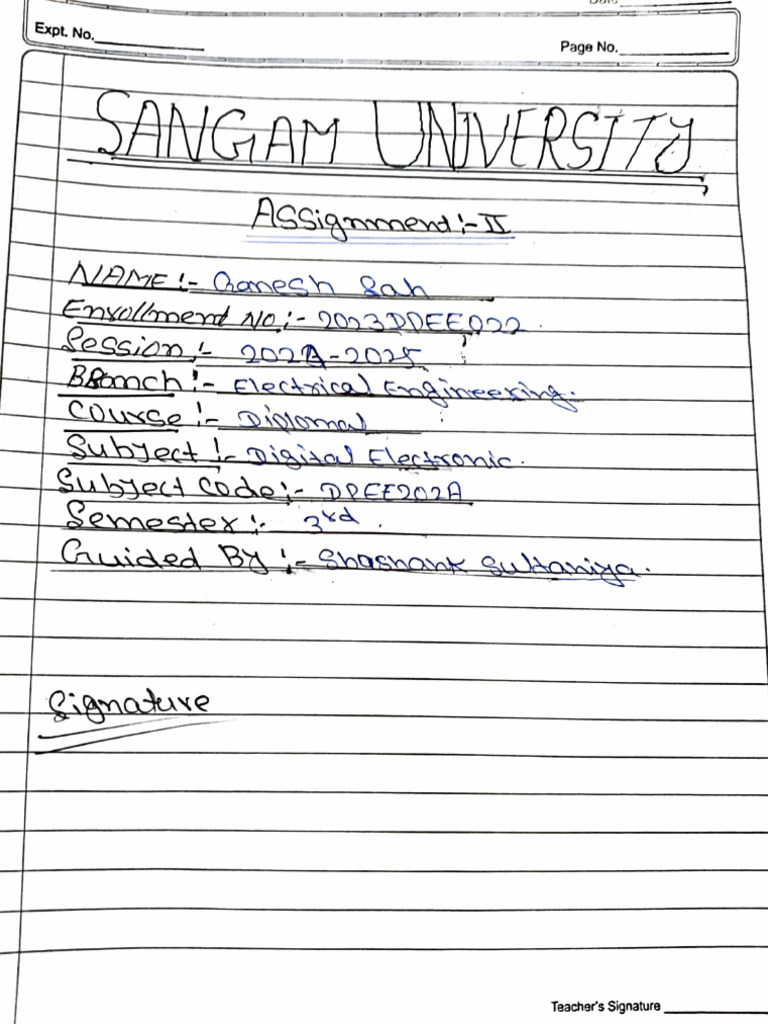 Expt. No.
Page No.
SANGAM UNIVERSITY
Assignment:-II
NAME:- Ganesh Sah
Enrollment No:- 2023DPEE022
Session:- 2024-2025
Branch:- Electrical Engineering.
Course:- Diplomal
Subject:- Digital Electronic.
Subject Code:- DPEE202A
Semester:- 3rd.
Guided By:- Shashank Sultaniya.
Signature
Teacher's Signature